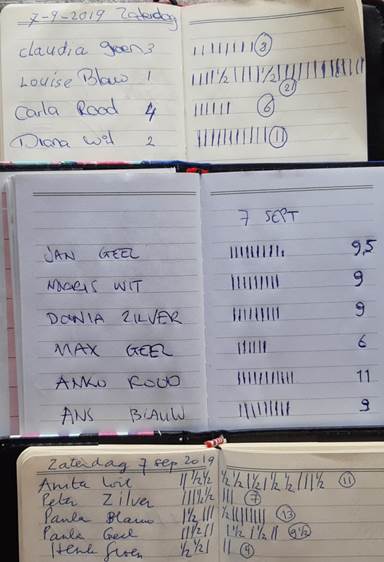 7-9-2019 Zaterdag
Claudia Groen 3 |||||||| 8
Louise Blauw 1 21
Carla Rood 4 |||||| 6
Diana Wit 2 ||||||||||| 11
7 SEPT
JAN GEEL 9,5
MARIS WIT ||||||||| 9
DONIA ZILVER ||||||||| 9
MAX GEEL |||||| 6
ANKO ROOD ||||||||||| 11
ANS BLAUW ||||||||| 9
Zaterdag 7 sep 2019
Anita Wit 11
Peter Zilver 7
Paula Blauw 13
Paula Geel 9½
Henk Groen ½ ½ | || 4